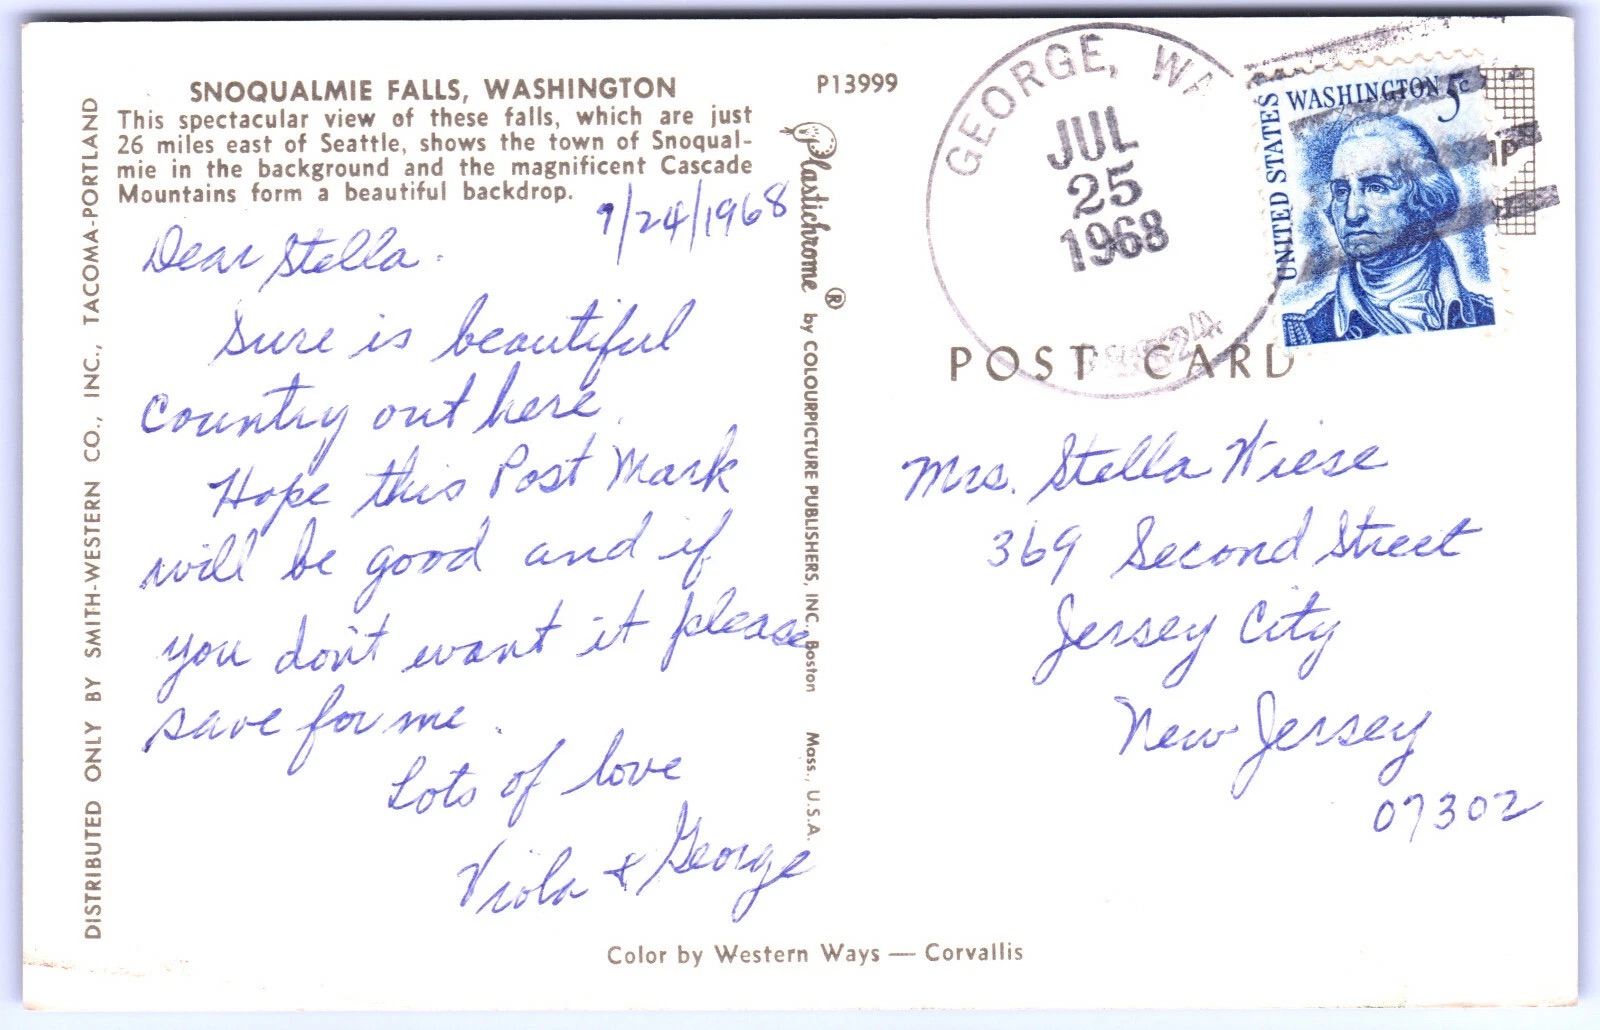 SNOQUALMIE FALLS, WASHINGTON
This spectacular view of these falls, which are just
26 miles east of Seattle, shows the town of Snoqual-
mie in the background and the magnificent Cascade
Mountains form a beautiful backdrop.
P13999
7/24/1968
Dear Stella.
Sure is beautiful
Country out here.
Hope this Post Mark
will be good and if
you don't want it please
save for me.
Lots of love
Viola & George
DISTRIBUTED ONLY BY SMITH-WESTERN CO., INC., TACOMA-PORTLAND
Plastichrome ® by COLOURPICTURE PUBLISHERS, INC. Boston Mass., U.S.A.
Color by Western Ways — Corvallis
GEORGE, WA
JUL
25
1968
UNITED STATES
WASHINGTON 5c
POST CARD
Mrs. Stella Wiese
369 Second Street
Jersey City
New Jersey
07302